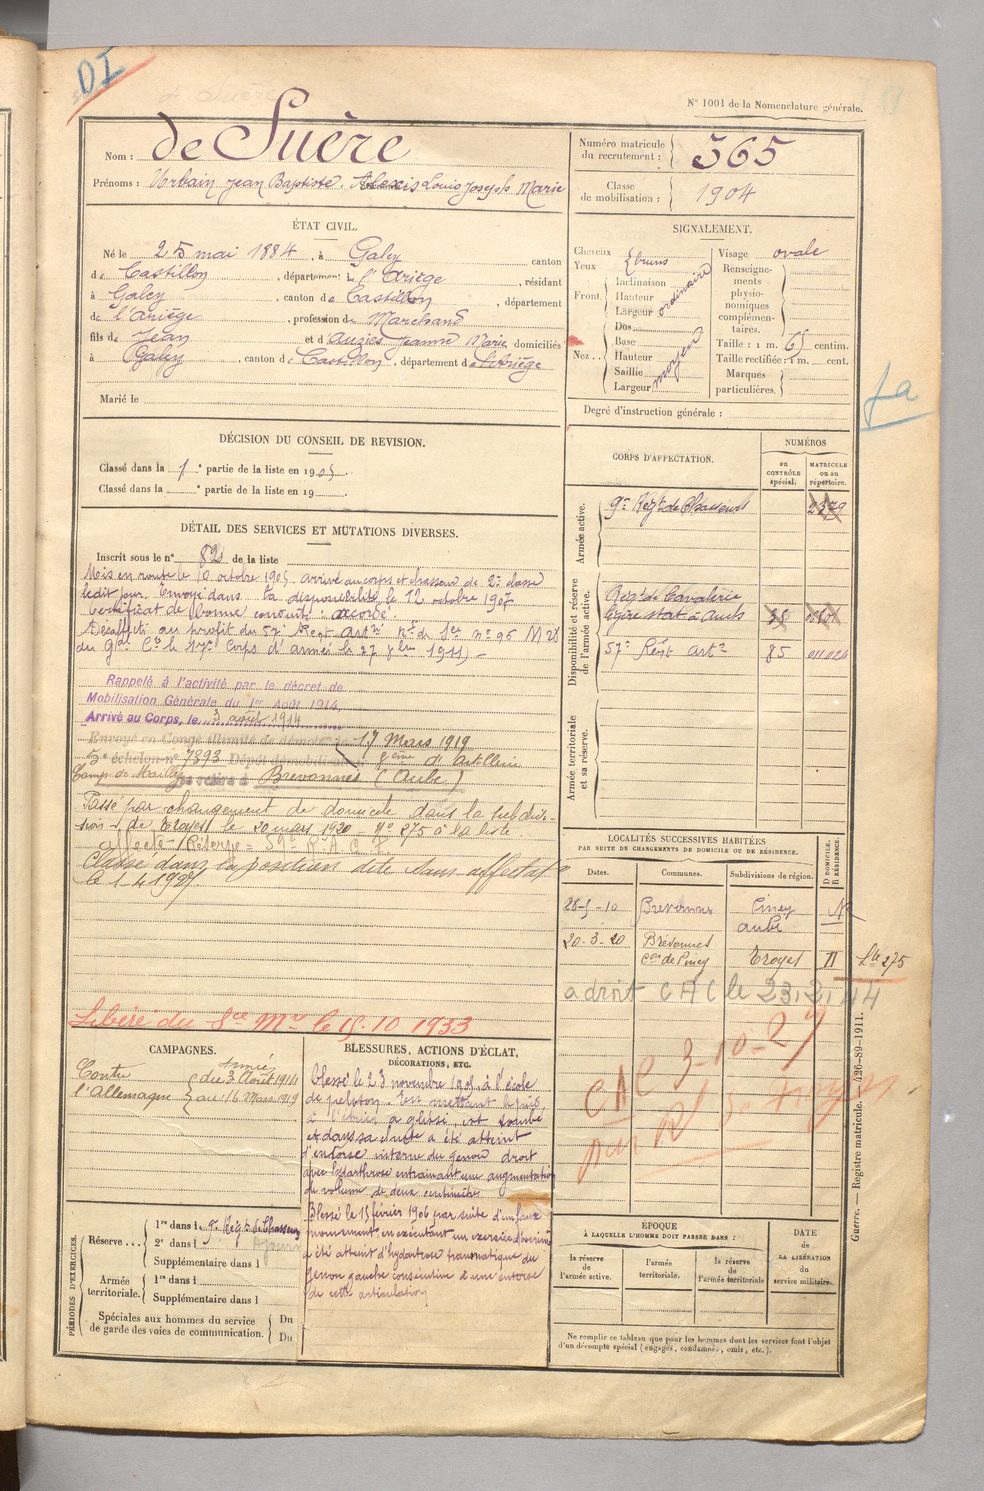 DI
N° 1001 de la Nomenclature générale.
Nom : de Suère
Prénoms : Urbain Jean Baptiste. Alexis Louis Joseph Marie
Numéro matricule du recrutement : 365
Classe de mobilisation : 1904
ÉTAT CIVIL.
Né le 25 mai 1884, à Galey canton
de Castillon, département de l'Ariège, résidant
à Galey, canton de Castillon, département
de l'Ariège, profession de Marchand
fils de Jean et d'Auziès Jeanne Marie domiciliés
à Galey, canton de Castillon, département de l'Ariège
Marié le
SIGNALEMENT.
Cheveux
Yeux
bruns
Front
Inclinaison
Hauteur
Largeur
ordinaire
Nez
Dos
Base
Hauteur
Saillie
Largeur
moyen
Visage ovale
Renseignements physionomiques complémentaires.
Taille : 1 m. 65 centim.
Taille rectifiée : 1 m. cent.
Marques particulières.
Degré d'instruction générale :
DÉCISION DU CONSEIL DE REVISION.
Classé dans la 1e partie de la liste en 1905.
Classé dans la e partie de la liste en 19
DÉTAIL DES SERVICES ET MUTATIONS DIVERSES.
Inscrit sous le n° 82 de la liste
Mis en route le 10 octobre 1905. arrivé au corps et chasseur de 2e classe
ledit jour. Envoyé dans la disponibilité le 12 octobre 1907
Certificat de bonne conduite : accordé.
Désaffecté au profit du 57e Regt Artie
du Gal Ct le 17e Corps d'armée le 27 1911
Rappelé à l'activité par le décret de
Mobilisation Générale du 1er Août 1914,
Arrivé au Corps, le 3 août 1914
Envoyé en Congé illimité de démobon le 17 Mars 1919
5e échelon n° 7393 Dépôt démobilisateur d'artillerie
Camp de Mailly se retire à Brévonnes (Aube)
Passé par changement de domicile dans la subdivi-
sion de Troyes le 20 mars 1920 - N° 275 à la liste.
Classé dans la position dite sans affectation
le 1-4 1927.
Libéré du Sce Mre le 15.10 1933
CORPS D'AFFECTATION.
NUMÉROS
au CONTRÔLE spécial.
MATRICULE ou au répertoire.
Armée active.
9e Régt de Chasseurs 2379
Disponibilité et réserve de l'armée active.
Régt de Cavalerie
légère stat. à Auch
57e Régt Artie 85 011024
Armée territoriale et sa réserve.
fa
LOCALITÉS SUCCESSIVES HABITÉES
PAR SUITE DE CHANGEMENTS DE DOMICILE OU DE RÉSIDENCE.
Dates.
Communes.
Subdivisions de région.
D DOMICILE. R RÉSIDENCE.
28-5-10 Brevonnes Piney Aube R
20-3-20 Brévonnes Con de Piney Troyes D Lte 275
a droit CAC le 23.2.44
CAC 3-10-27
CAMPAGNES.
Contre l'Allemagne
Armée
du 3 Août 1914
au 16 Mars 1919
BLESSURES, ACTIONS D'ÉCLAT,
DÉCORATIONS, ETC.
Blessé le 23 novembre 1905, à l'école
de peloton. En mettant le pied
à l'étrier a glissé, est tombé
et dans sa chute a été atteint
d'entorse interne du genou droit
avec hydarthrose entrainant une augmentation
de volume de deux centimètres
Blessé le 15 février 1906 par suite d'un faux
mouvement, en exécutant un exercice d'escrime
a été atteint d'hydartrose traumatique du
genou gauche consécutive à une entorse
de cette articulation
PÉRIODES D'EXERCICES.
Réserve
1re dans le 9e Régt de Chasseurs
2e dans l
Supplémentaire dans l
Armée territoriale.
1re dans l
Supplémentaire dans l
Spéciales aux hommes du service de garde des voies de communication.
Du
Du
ÉPOQUE
À LAQUELLE L'HOMME DOIT PASSER DANS :
la réserve de l'armée active.
l'armée territoriale.
la réserve de l'armée territoriale
DATE de LA LIBÉRATION du service militaire.
Ne remplir ce tableau que pour les hommes dont les services font l'objet
d'un décompte spécial (engagés, condamnés, omis, etc.).
Guerre. — Registre matricule. 426-89-1911.